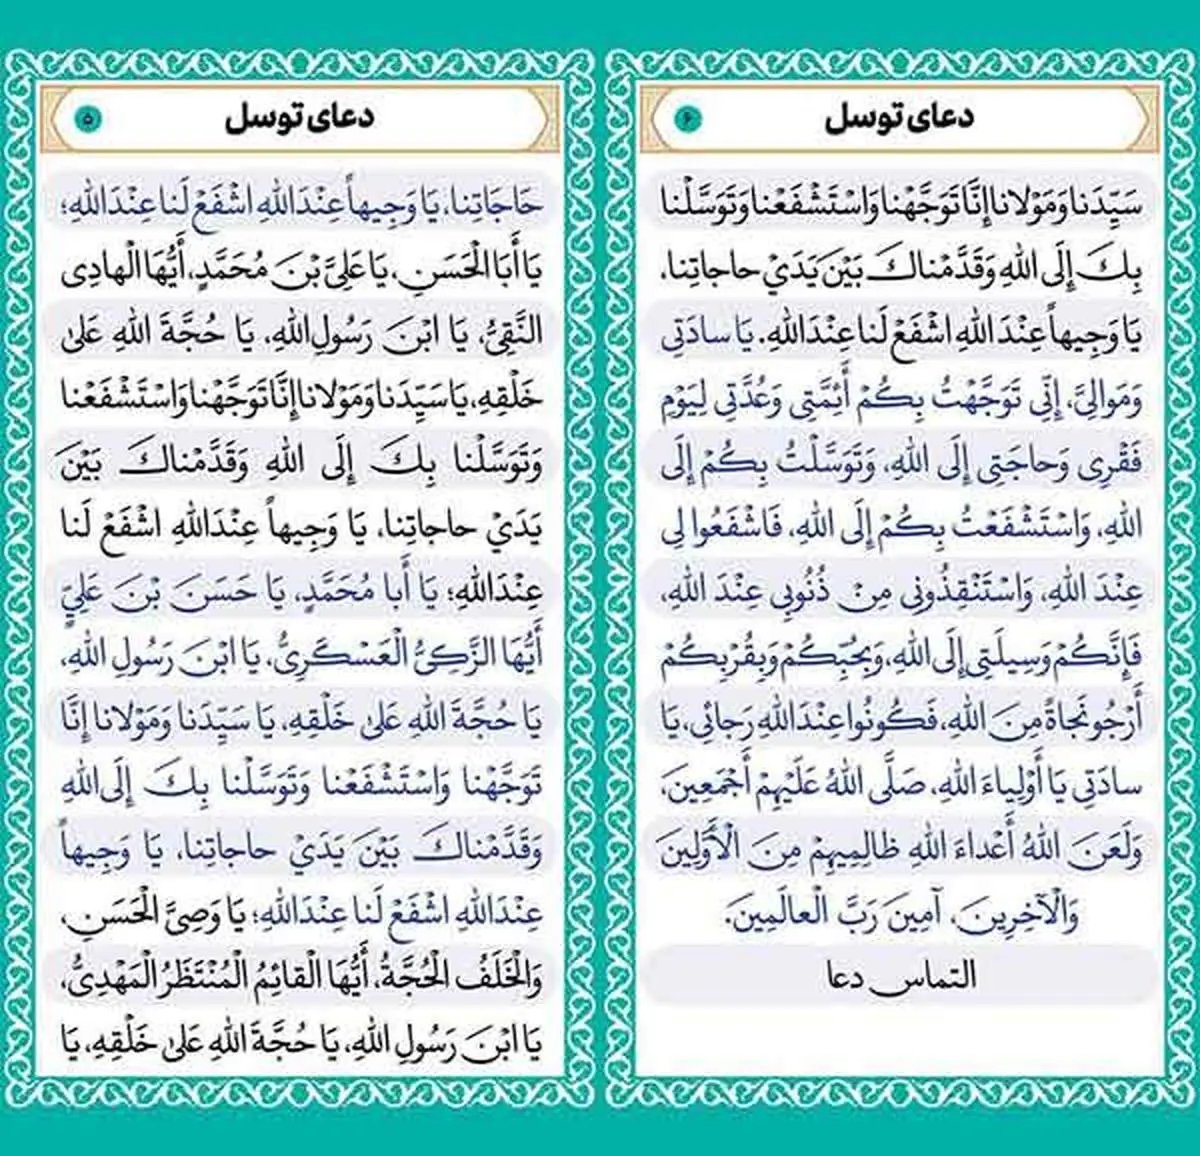 دعای توسل
۵
حَاجَاتِنا، يَا وَجِيهاً عِنْدَ اللهِ اشْفَعْ لَنا عِنْدَ اللهِ؛
يَا أَبَا الْحَسَنِ، يَا عَلِىَّ بْنَ مُحَمَّدٍ، أَيُّهَا الْهادِى
النَّقِىُّ، يَا ابْنَ رَسُولِ اللهِ، يَا حُجَّةَ اللهِ عَلىٰ
خَلْقِهِ، يَا سَيِّدَنا وَمَوْلانا إِنَّا تَوَجَّهْنا وَاسْتَشْفَعْنا
وَتَوَسَّلْنا بِكَ إِلَى اللهِ وَقَدَّمْناكَ بَيْنَ
يَدَيْ حاجاتِنا، يَا وَجِيهاً عِنْدَ اللهِ اشْفَعْ لَنا
عِنْدَ اللهِ؛ يَا أَبا مُحَمَّدٍ، يَا حَسَنَ بْنَ عَلِيٍّ
أَيُّهَا الزَّكِىُّ الْعَسْكَرِىُّ، يَا ابْنَ رَسُولِ اللهِ،
يَا حُجَّةَ اللهِ عَلىٰ خَلْقِهِ، يَا سَيِّدَنا وَمَوْلانا إِنَّا
تَوَجَّهْنا وَاسْتَشْفَعْنا وَتَوَسَّلْنا بِكَ إِلَى اللهِ
وَقَدَّمْناكَ بَيْنَ يَدَيْ حاجاتِنا، يَا وَجِيهاً
عِنْدَ اللهِ اشْفَعْ لَنا عِنْدَ اللهِ؛ يَا وَصِىَّ الْحَسَنِ،
وَالْخَلَفُ الْحُجَّةُ، أَيُّهَا الْقائِمُ الْمُنْتَظَرُ الْمَهْدِىُّ،
يَا ابْنَ رَسُولِ اللهِ، يَا حُجَّةَ اللهِ عَلىٰ خَلْقِهِ، يَا
دعای توسل
۶
سَيِّدَنا وَمَوْلانا إِنَّا تَوَجَّهْنا وَاسْتَشْفَعْنا وَتَوَسَّلْنا
بِكَ إِلَى اللهِ وَقَدَّمْناكَ بَيْنَ يَدَيْ حاجاتِنا،
يَا وَجِيهاً عِنْدَ اللهِ اشْفَعْ لَنا عِنْدَ اللهِ. يَا سادَتِى
وَمَوالِىَّ، إِنِّى تَوَجَّهْتُ بِكُمْ أَئِمَّتِى وَعُدَّتِى لِيَوْمِ
فَقْرِى وَحاجَتِى إِلَى اللهِ، وَتَوَسَّلْتُ بِكُمْ إِلَى
اللهِ، وَاسْتَشْفَعْتُ بِكُمْ إِلَى اللهِ، فَاشْفَعُوا لِى
عِنْدَ اللهِ، وَاسْتَنْقِذُونِى مِنْ ذُنُوبِى عِنْدَ اللهِ،
فَإِنَّكُمْ وَسِيلَتِى إِلَى اللهِ، وَبِحُبِّكُمْ وَبِقُرْبِكُمْ
أَرْجُو نَجاةً مِنَ اللهِ، فَكُونُوا عِنْدَ اللهِ رَجائِى، يَا
سادَتِى يَا أَوْلِياءَ اللهِ، صَلَّى اللهُ عَلَيْهِمْ أَجْمَعِينَ،
وَلَعَنَ اللهُ أَعْداءَ اللهِ ظالِمِيهِمْ مِنَ الْأَوَّلِينَ
وَالْآخِرِينَ، آمِينَ رَبَّ الْعالَمِينَ.
التماس دعا